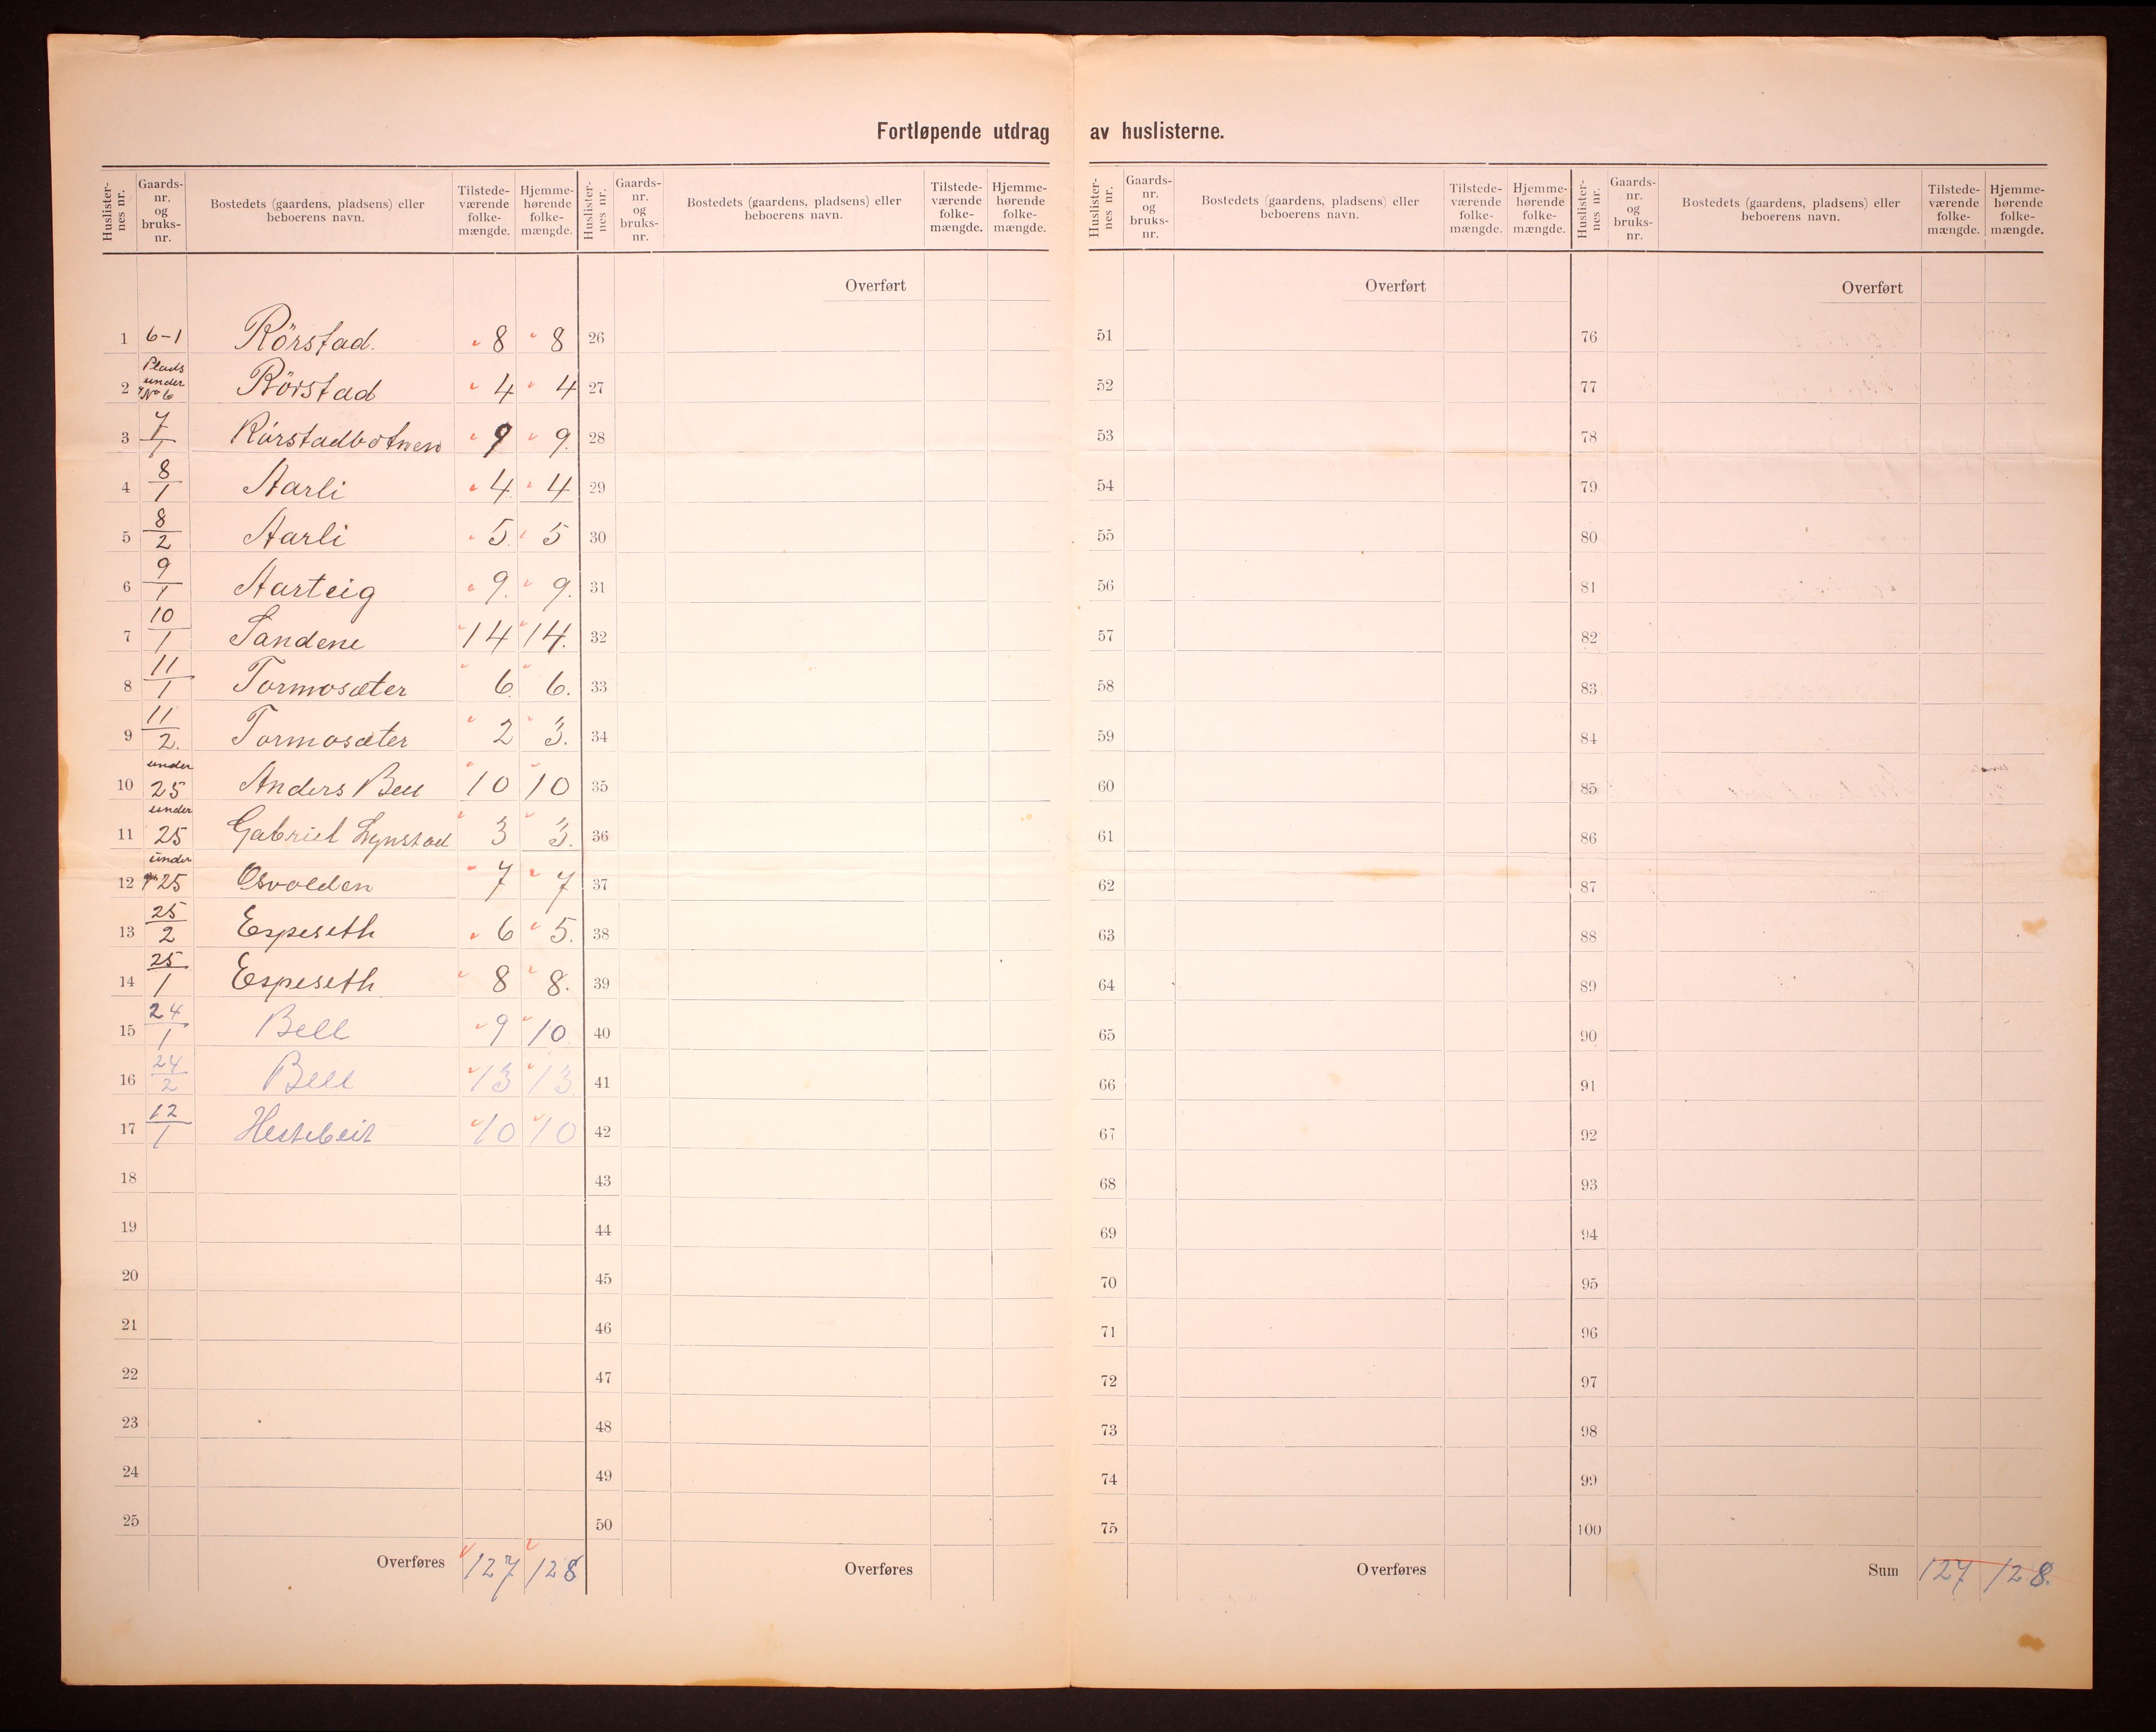 Fortløpende utdrag av huslisterne.
Huslister-nes nr. Gaards-nr. og bruks-nr. Bostedets (gaardens, pladsens) eller beboerens navn. Tilstede-værende folke-mængde. Hjemme-hørende folke-mængde.
1 6-1 Rörstad. 8 8
2 Plads under No 6 Rörstad 4 4
3 7/1 Rörstadbotnen 9 9.
4 8/1 Aarli 4 4
5 8/2 Aarli 5. 5
6 9/1 Aarteig 9. 9.
7 10/1 Sandene 14 14.
8 11/1 Tormosæter 6. 6.
9 11/2. Tormosæter 2 3.
10 under 25 Anders Bell 10 10
11 under 25 Gabriel 3 3.
12 under 25 Osvolden 7 7
13 25/2 Espeseth 6 5.
14 25/1 Espeseth 8 8.
15 24/1 Bell 9 10
16 24/2 Bell 13 13
17 12/1 Hestebeit 10 10
18
19
20
21
22
23
24
25
Overføres 127 128
Huslister-nes nr. Gaards-nr. og bruks-nr. Bostedets (gaardens, pladsens) eller beboerens navn. Tilstede-værende folke-mængde. Hjemme-hørende folke-mængde.
Overført
26
27
28
29
30
31
32
33
34
35
36
37
38
39
40
41
42
43
44
45
46
47
48
49
50
Overføres
Huslister-nes nr. Gaards-nr. og bruks-nr. Bostedets (gaardens, pladsens) eller beboerens navn. Tilstede-værende folke-mængde. Hjemme-hørende folke-mængde.
Overført
51
52
53
54
55
56
57
58
59
60
61
62
63
64
65
66
67
68
69
70
71
72
73
74
75
Overføres
Huslister-nes nr. Gaards-nr. og bruks-nr. Bostedets (gaardens, pladsens) eller beboerens navn. Tilstede-værende folke-mængde. Hjemme-hørende folke-mængde.
Overført
76
77
78
79
80
81
82
83
84
85
86
87
88
89
90
91
92
93
94
95
96
97
98
99
100
Sum 127 128.